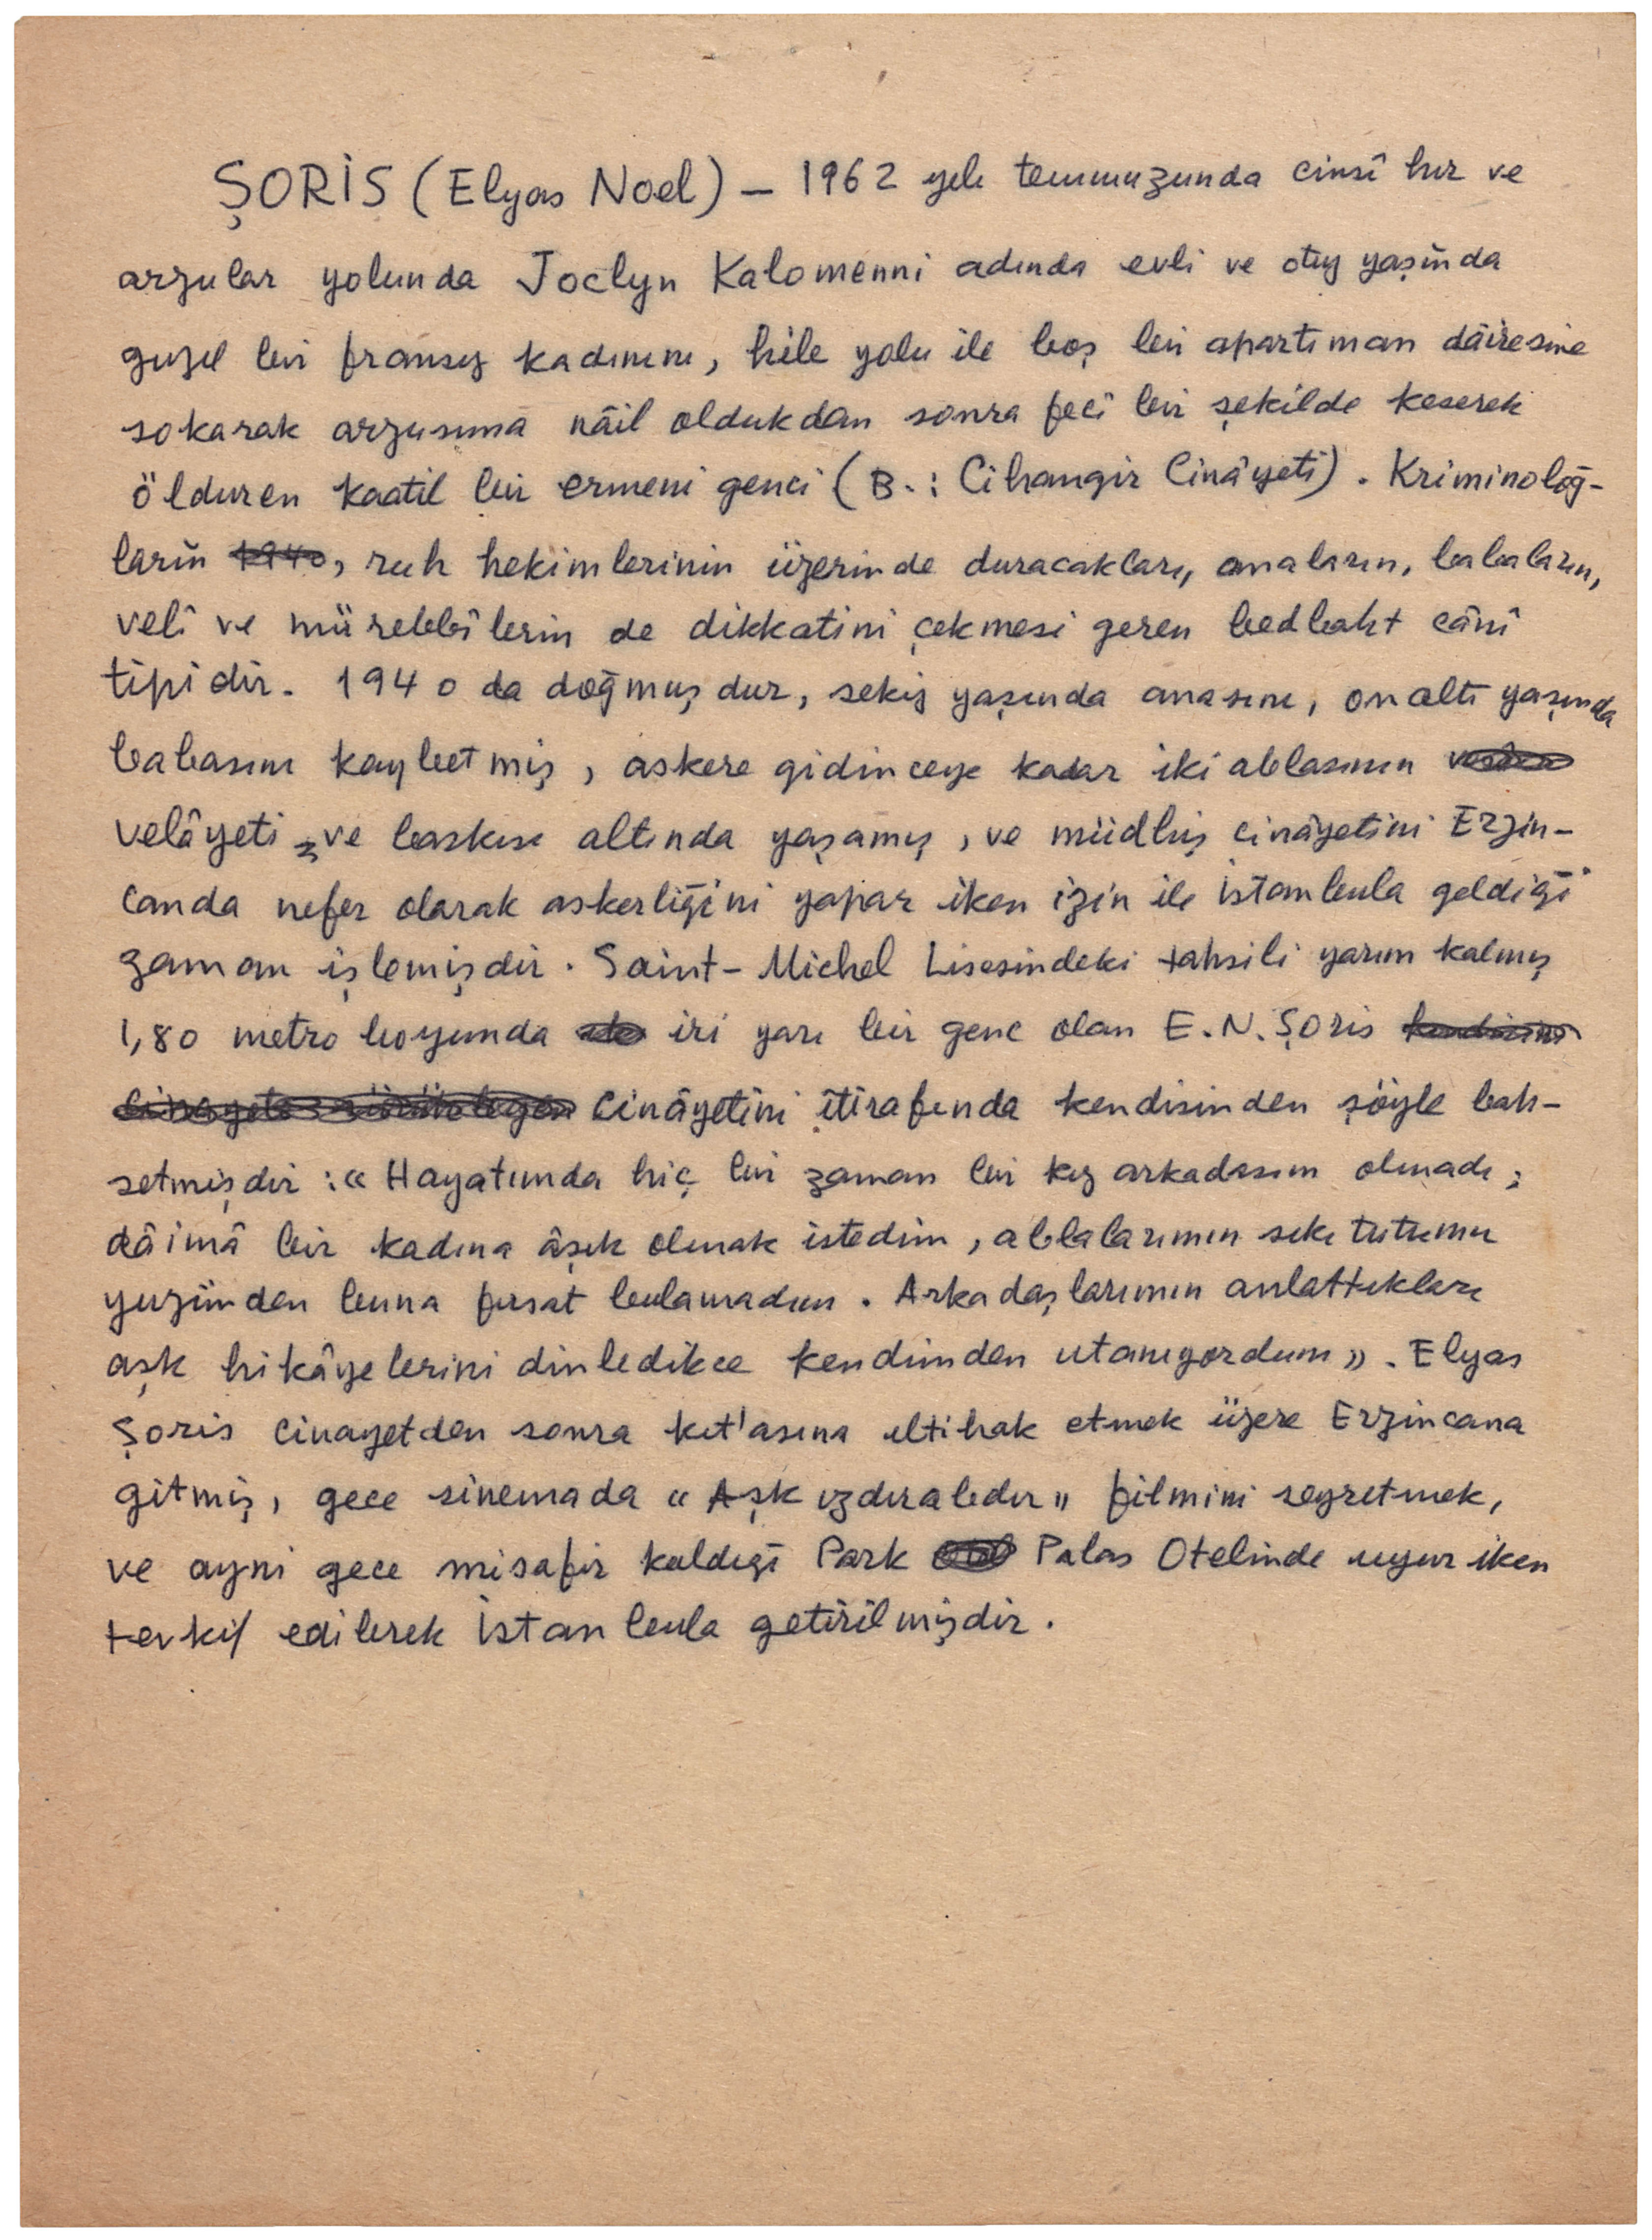 ŞORİS (Elyas Noel) — 1962 yılı temmuzunda cinsî hız ve
arzular yolunda Joclyn Kalomenni adında evli ve otuz yaşında
güzel bir fransız kadınını, hile yolu ile boş bir apartıman dâiresine
sokarak arzusuna nâil oldukdan sonra fecî bir şekilde keserek
öldüren kaatil bir ermeni genci (B.: Cihangir Cinâyeti). Kriminoloğ-
ların, ruh hekimlerinin üzerinde duracakları, anaların, babaların,
velî ve mürebbîlerin de dikkatini çekmesi geren bedbaht cânî
tipidir. 1940 da doğmuşdur, sekiz yaşında anasını, onaltı yaşında
babasını kaybetmiş, askere gidinceye kadar iki ablasının
velâyeti ve baskısı altında yaşamış, ve müdhiş cinâyetini Erzin-
canda nefer olarak askerliğini yapar iken izin ile İstanbula geldiği
zaman işlemişdir. Saint-Michel Lisesindeki tahsili yarım kalmış
1,80 metro boyunda iri yarı bir genc olan E.N.Şoris
Cinâyetini îtirafında kendisinden şöyle bah-
setmişdir: « Hayatımda hiç bir zaman bir kız arkadaşım olmadı;
dâimâ bir kadına âşık olmak istedim, ablalarımın sıkı tutumu
yüzünden buna fırsat bulamadım. Arkadaşlarımın anlattıkları
aşk hikâyelerini dinledikce kendimden utanıyordum». Elyas
Şoris cinayetden sonra kıt'asına iltihak etmek üzere Erzincana
gitmiş, gece sinemada « Aşk ızdırabdır» filmini seyretmek,
ve ayni gece misafir kaldığı Park Palas Otelinde uyur iken
tevkif edilerek İstanbula getirilmişdir.